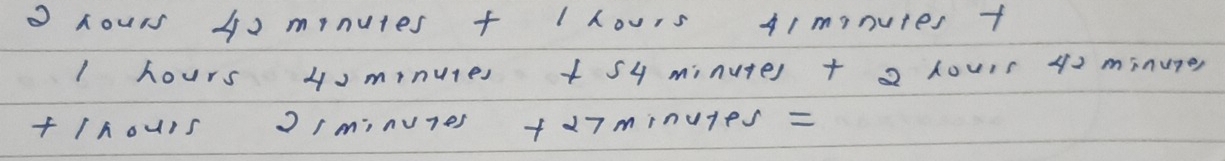 2 hours 42 minutes + 1 hours 41 minutes +
1 hours 42 minutes + 54 minutes + 2 hours 42 minutes
+ 1 hours 21 minutes + 27 minutes =